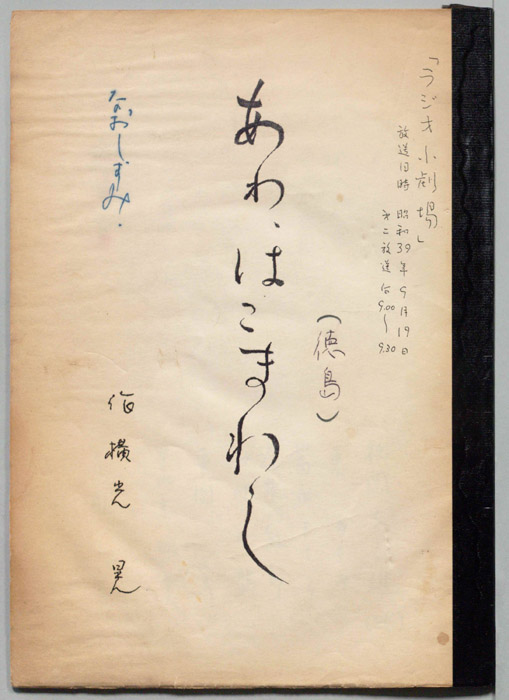 「ラジオ小劇場」
放送日時 昭和39年9月19日
第二放送 后9.00〜9.30
(徳島)
あわ、はこまわし
なおしずみ.
作 横光 晃